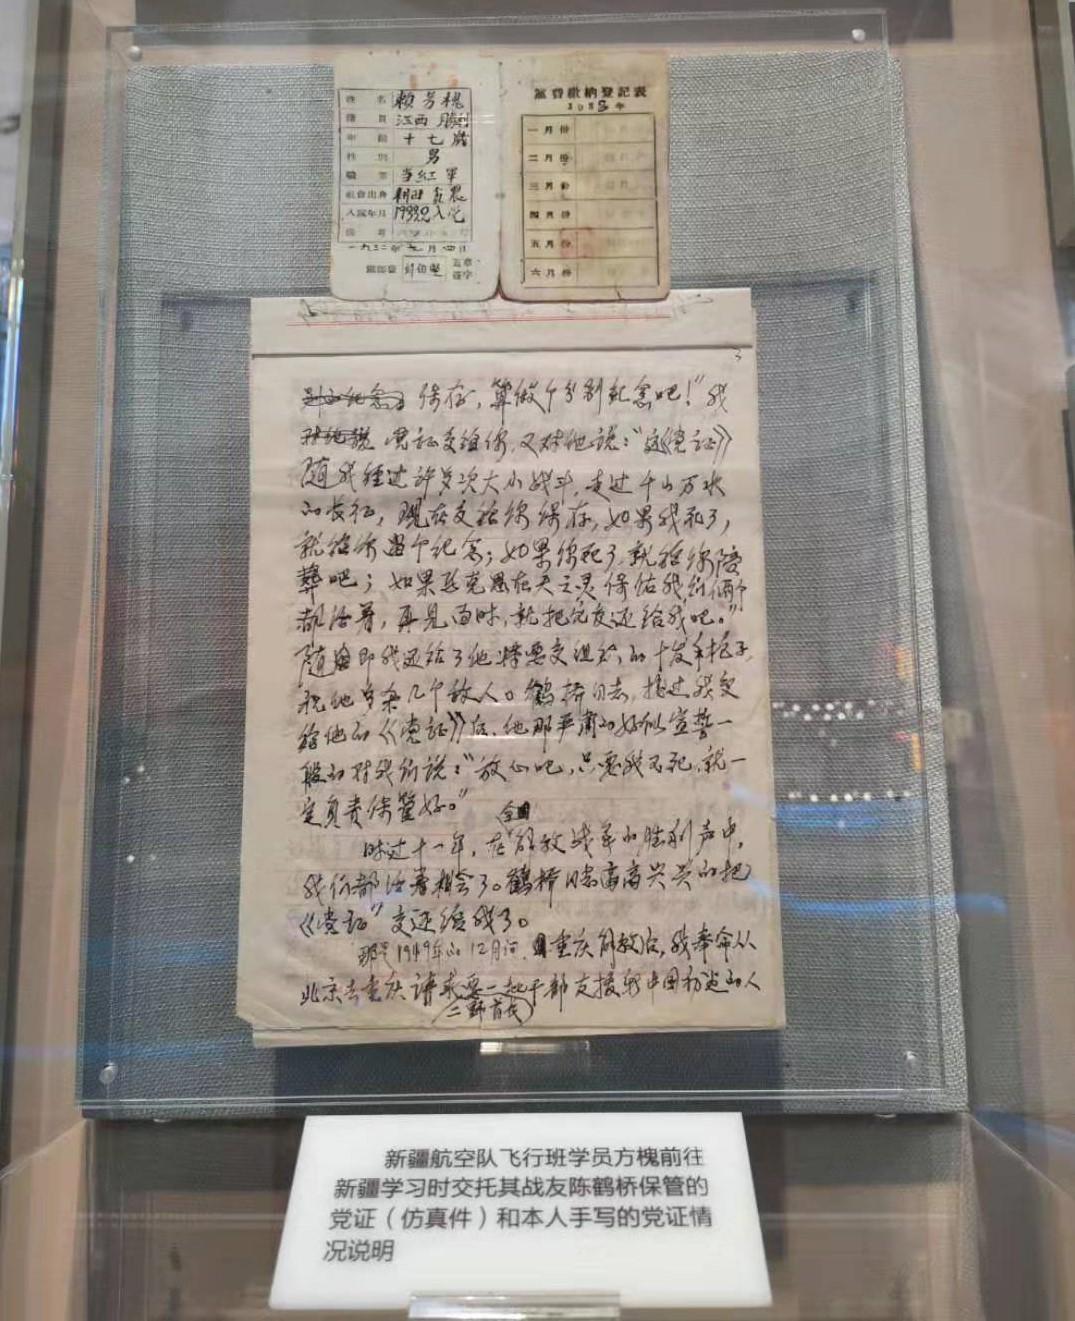 姓名 賴芳槐
籍貫 江西
年齡 十七歲
性別 男
職業 当红軍
社會出身 貧農
入黨年月 入党
備考
一九三二年九月四日
蓋章
簽字
黨費繳納登記表
年
一月份
二月份
三月份
四月份
五月份
六月份
3
保存，算做个分别纪念吧！"我
党证交给你，又对他说："这《党证》
随我经过许多次大小战斗，走过千山万水
的长征，现在交给你保存，如果我死了，
就给你留个纪念；如果你死了，就给你陪
葬吧；如果马克思在天之灵保佑我们俩个
都活着，再见面时，就把它交还给我吧。"
随即我还给了他将要交组织的十发手枪子，
祝他多杀几个敌人。鹤桥同志，接过我交
给他的《党证》后，他那严肃的好似宣誓一
般的对我们说："放心吧，只要我不死，就一
定负责保管好。"
时过十一年，在全国解放战争的胜利声中，
我们都活着相会了。鹤桥同志高高兴兴的把
《党证"交还给我了。
那是1949年的12月间，重庆解放后，我奉命从
北京去重庆请求要一批干部支援新中国初建的人
新疆航空队飞行班学员方槐前往
新疆学习时交托其战友陈鹤桥保管的
党证（仿真件）和本人手写的党证情
况说明